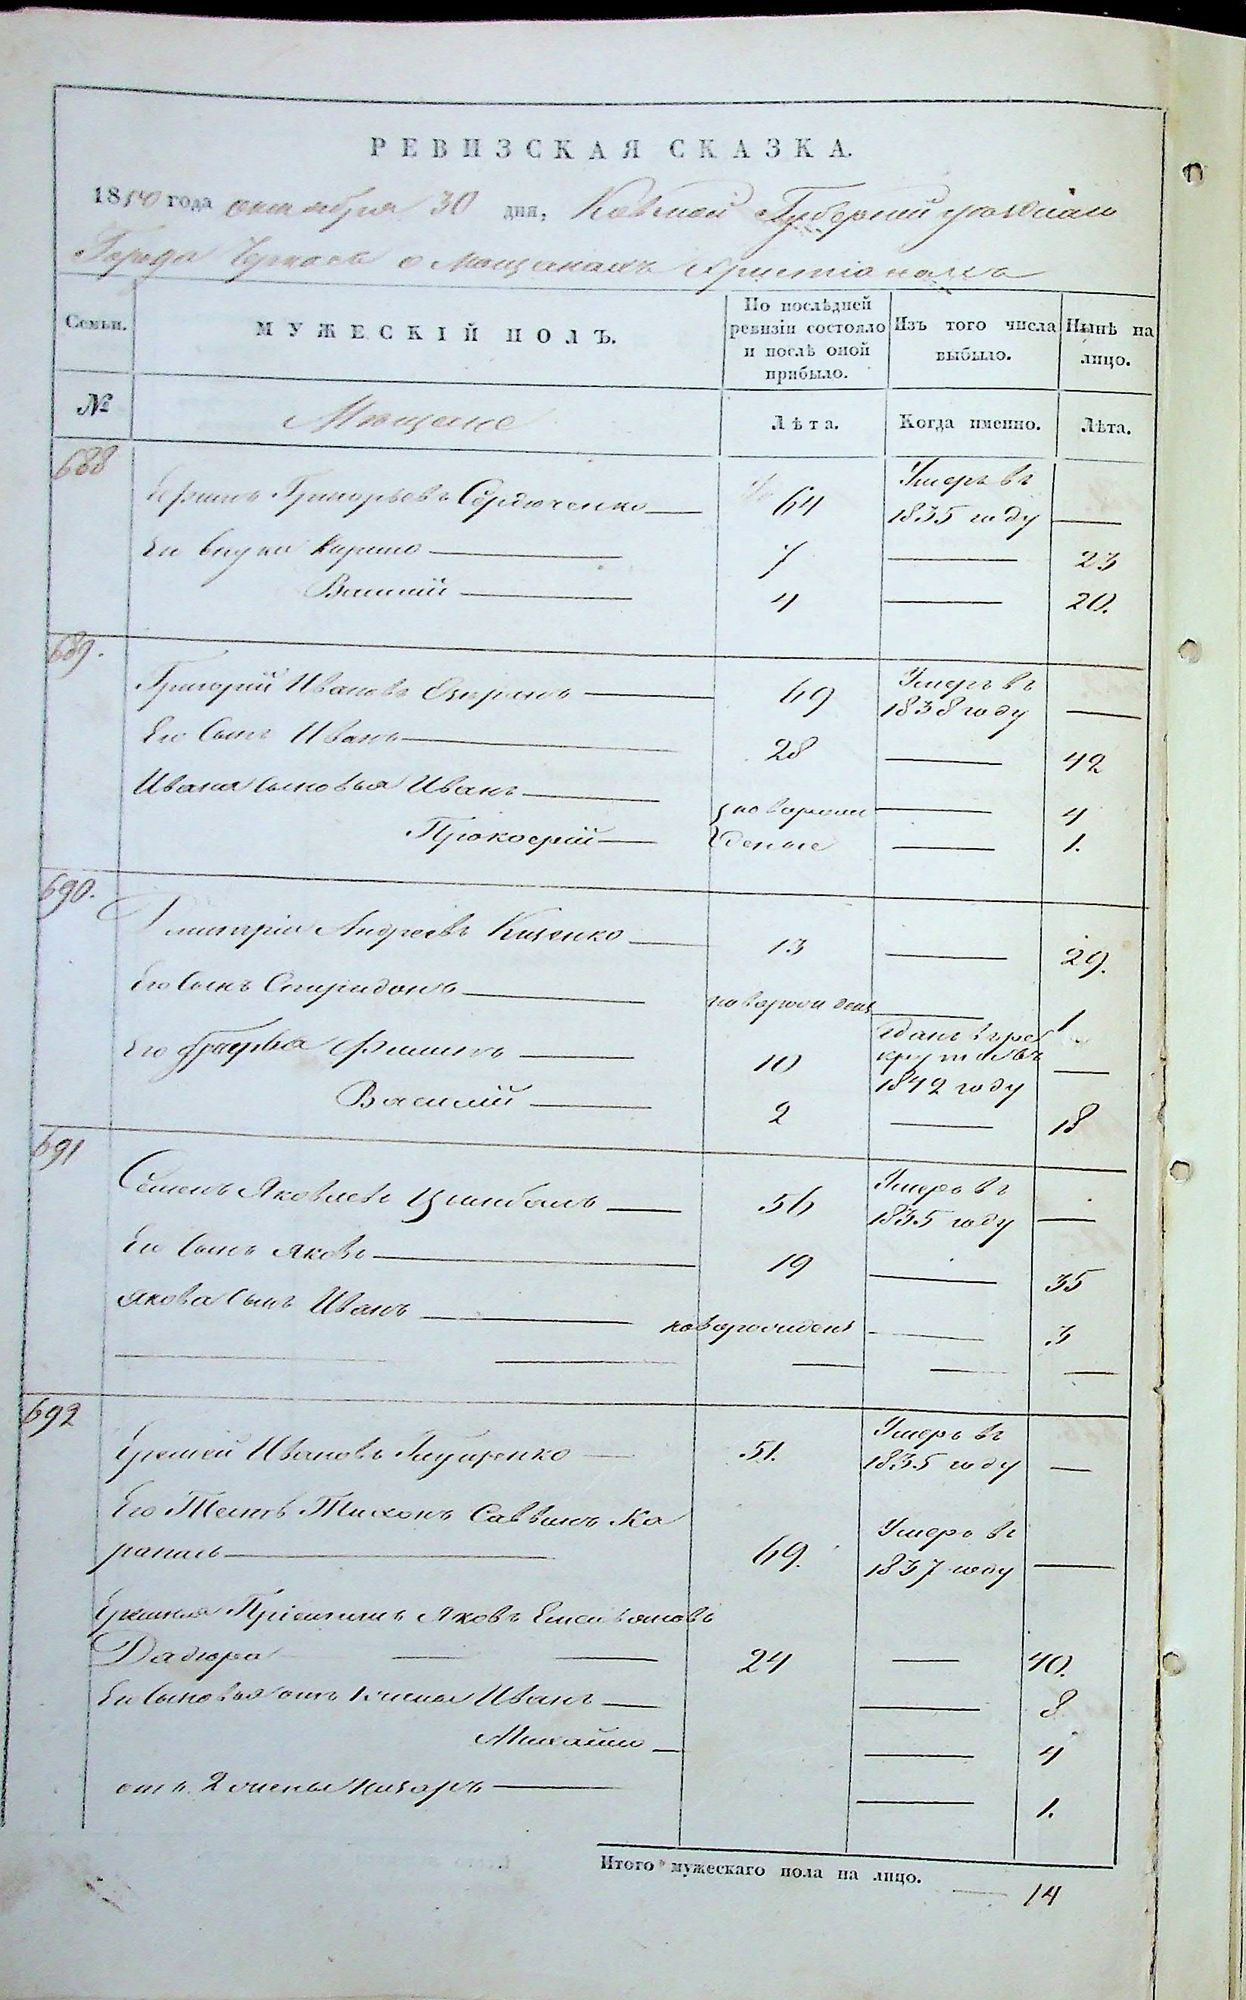 РЕВИЗСКАЯ СКАЗКА.
1850 года октября 30 дня, Киевской Губернии уезднаго
Города Черкасъ о Мещанахъ христіянахъ
Семьи. МУЖЕСКІЙ ПОЛЪ. По послѣдней ревизіи состояло и послѣ оной прибыло. Изъ того числа выбыло. Нынѣ на лицо.
№ Мещане Лѣта. Когда именно. Лѣта.
688
Григорьевъ Сердюченко 64 Умеръ въ 1835 году
Его внуки Кирило 7 23
Василий 4 20.
689.
Григорий Ивановъ 49 Умеръ въ 1838 году
Его Сынъ Иванъ 28 42
Ивана сыновья Иванъ новорож 4
Прокофий деные 1.
690.
Дмитрій Андреевъ Киценко 13 29.
Его Сынъ Спиридонъ новорожден 1
Его братья Филипъ 10 Отданъ въ рекруты въ 1842 году
Василий 2 18
691
Семенъ Яковлевъ Цимбалъ 56 Умеръ въ 1835 году
Его Сынъ Яковъ 19 35
Якова сынъ Иванъ новорожден 3
692
Еремей Ивановъ 51. Умеръ въ 1835 году
Его Тесть Тихонъ Саввинъ Ка
рапись 69. Умеръ въ 1837 году
Еремея Пріемышъ Яковъ Емельяновъ
Дадюра 24 40.
Его Сыновья отъ 1 жены Иванъ 8
Михайло 4
отъ 2 жены Назаръ 1.
Итого мужескаго пола на лицо. 14